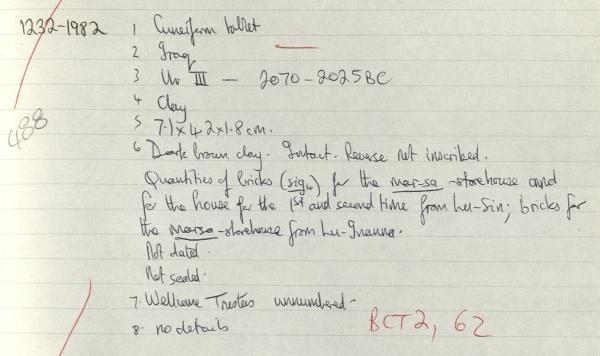 1232-1982 1 Cuneiform tablet
2 Iraq
3 Ur III — 2070-2025BC
4 Clay
488
5 7.1 x 4.2 x 1.8 cm.
6 Dark brown clay. Intact. Reverse not inscribed.
Quantities of bricks (sig4) for the mar-sa-storehouse and
for the house for the 1st and second time from Lu-Sin; bricks for
the marsa-storehouse from Lu-Inanna.
Not dated.
Not sealed.
7. Wellcome Trustees unnumbered-
8. no details
BCT2, 62